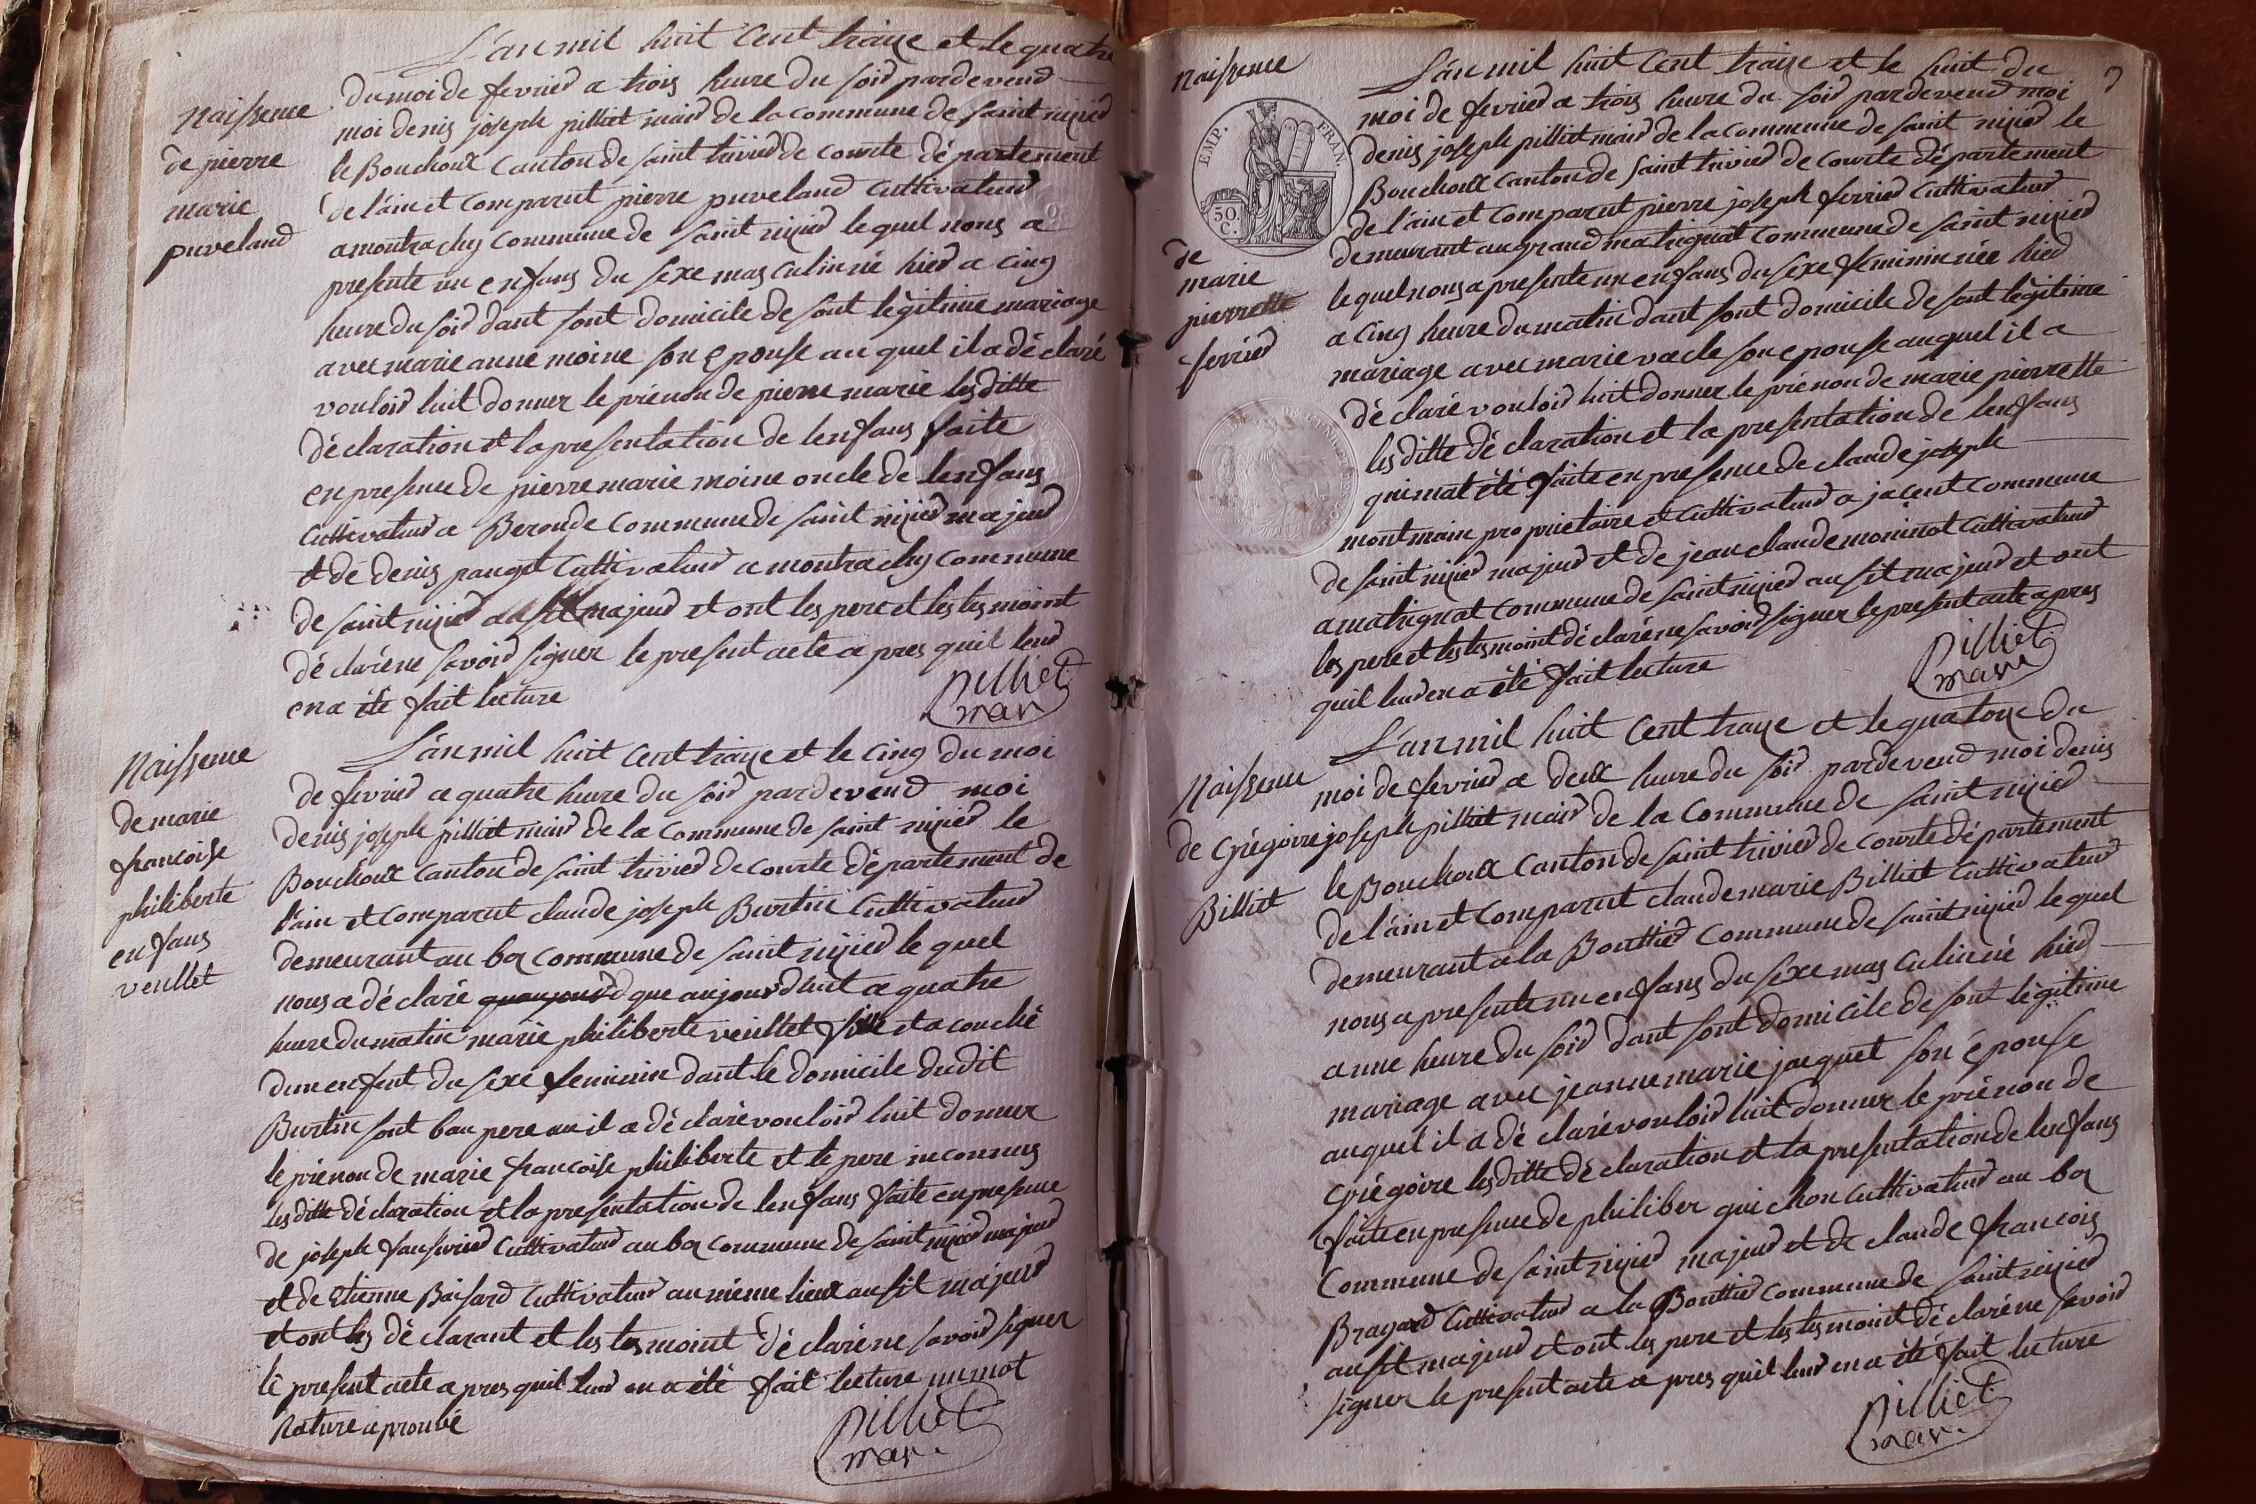 L'an mil huit Cent traize et le quatre
du moi de fevrier a trois heure du soir pardevend
moi denis joseph pilliet mair de la commune de saint nizier
le Bouchoux Canton de saint trivier de courte département
de l'ain et comparut pierre puveland Cultivateur
a montrachy Commune de saint nizier le quel nous a
presente un enfans du sexe masculin né hier a cinq
heure du soir dant sont domicile de sont légitime mariage
avec marie anne moine son epouse au quel il a déclaré
vouloir luit donner le prénon de pierre marie les ditte
déclaration et la presentation de lenfans faite
en presence de pierre marie moine oncle de lenfans
Cultivateur a Beronde Commune de saint nizier majeur
et de denis pauget Cultivateur a montrachy commune
de saint nizier ausit majeur et ont les pere et les tesmoint
déclaréne savoir signer le present acte a pres quil leur
en a été fait lecture
Naissence
de pierre
marie
puveland
pilliet
mair
L'an mil huit Cent traize et le cinq du moi
de fevrier a quatre heure du soir pardevend moi
denis joseph pilliet mair de la Commune de saint nizier le
Bouchoux Canton de saint trivier de courte département de
l'ain et comparut claude joseph Burtin Cultivateur
demeurant au boz commune de saint nizier le quel
nous a déclaré que aujourd'huit a quatre
heure du matin marie philiberte veullet fille et a couché
dun enfent du sexe feminin dant le domicile dudit
Burtin sont bau pere au il a déclaré vouloir luit donner
le prénon de marie francoise philiberte et le pere inconnus
les ditte déclaration et la presentation de lenfans faite en presence
de joseph Cultivateur au boz commune de saint nizier majeur
et de Etienne Baisard Cultivateur au même lieux ausit majeur
et ont les déclarant et les tesmoint déclaréne savoir signer
le present acte a pres quil leur en a été fait lecture un mot
rature aprouvé
Naissence
de marie
francoise
philiberte
enfans
veullet
pilliet
mair
L'an mil huit Cent traize et le huit du
moi de fevrier a trois heure du soir pardevend moi
denis joseph pilliet mair de la commune de saint nizier le
Bouchoux canton de saint trivier de courte département
de l'ain et comparut pierre joseph ferrier Cultivateur
demeurant au grand matrignat commune de saint nizier
le quel nous a presente un enfans du sexe feminin née hier
a cinq heure du matin dant sont domicile de sont légitime
mariage avec marie vacle son epouse auquel il a
déclaré vouloir luit donner le prénon de marie pierrette
les ditte déclaration et la presentation de lenfans
été faite en presence de claude joseph
montmain proprietaire et Cultivateur a jacent commune
de saint nizier majeur et de jean claude moninot Cultivateur
a matrignat commune de saint nizier ausit majeur et ont
les pere et les tesmoint déclaréne savoir signer le present acte a pres
quil leur en a été fait lecture
Naissence
EMP. FRAN.
50.
C.
de
marie
pierrette
ferrier
pilliet
mair
L'an mil huit Cent traize et le quatorze du
moi de fevrier a deux heure du soir pardevend moi denis
joseph pilliet mair de la Commune de saint nizier
le Bouchoux Canton de saint trivier de courte département
de l'ain et Comparut claude marie Billiet Cultivateur
demeurant a la Bouttier Commune de saint nizier le quel
nous a presente un enfans du sexe masculin né hier
a une heure du soir dant sont domicile de sont légitime
mariage avec jeanne marie jacquet son épouse
auquel il a déclaré vouloir luit donner le prénon de
Grégoire les ditte déclaration et la presentation de lenfans
faite en presence de philiber quichon Cultivateur au boz
Commune de saint nizier majeur et de claude francois
Bragard Cultivateur a la Bouttier commune de saint nizier
ausit majeur et ont les pere et les tesmoint déclaréne savoir
signer le present acte a pres quil leur en a été fait lecture
Naissence
de Grégoire
Billiet
pilliet
mair